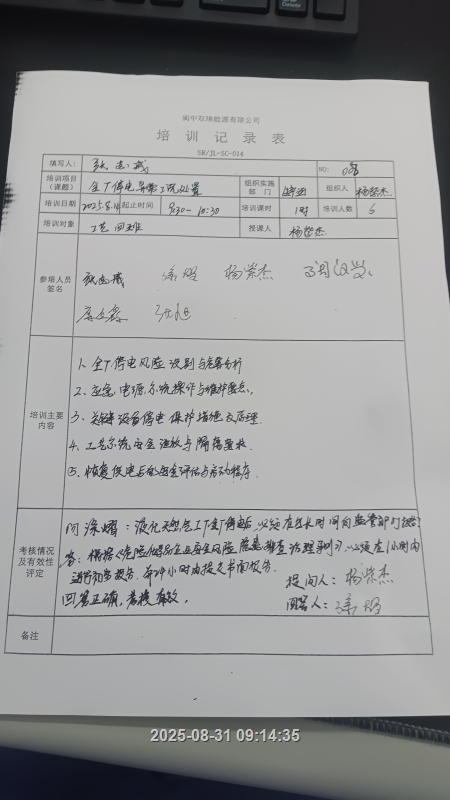 阆中双瑞能源有限公司
培训记录表
SR/JL-SC-014
填写人: 张志诚 NO:
培训项目(课题) 全厂停电异常工况处置 组织实施部门 组织人 杨崇杰
培训日期 2025.8. 起止时间 9:30— 10:30 培训课时 1时 培训人数 6
培训对象 工艺四班 授课人 杨崇杰
参培人员签名
杨崇杰
培训主要内容
1、全厂停电风险识别与危害分析
2、应急电源系统操作与维护要点
3、关键设备停电保护措施及原理
4、工艺系统安全泄放与隔离要求
5、恢复供电后的安全评估与启动程序
考核情况及有效性评定
问涂熠:液化天然气工厂全厂停电后,必须在多长时间向监管部门报告?
答:根据《危险化学品企业安全风险隐患排查治理导则》,必须在1小时内
进行初步报告,24小时内提交书面报告。
提问人:杨崇杰
回答正确,考核有效。
回答人:涂熠
备注
2025-08-31 09:14:35